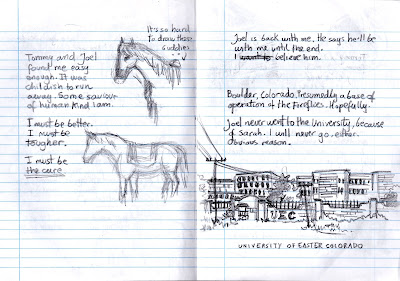 It's so hard
to draw these
buddies
Tommy and Joel
found me easy
enough. It was
childish to run
away. Some saviour
of human kind I am.
I must be better.
I must be
tougher.
I must be
the cure
Joel is back with me. He says he'll be
with me until the end.
I want to believe him.
Boulder, Colorado. Presumedly a base of
operation of the Fireflies. Hopefully.
Joel never went to the University, because
of Sarah. I will never go, either.
Obvious reason.
UEC
UNIVERSITY OF EASTER COLORADO